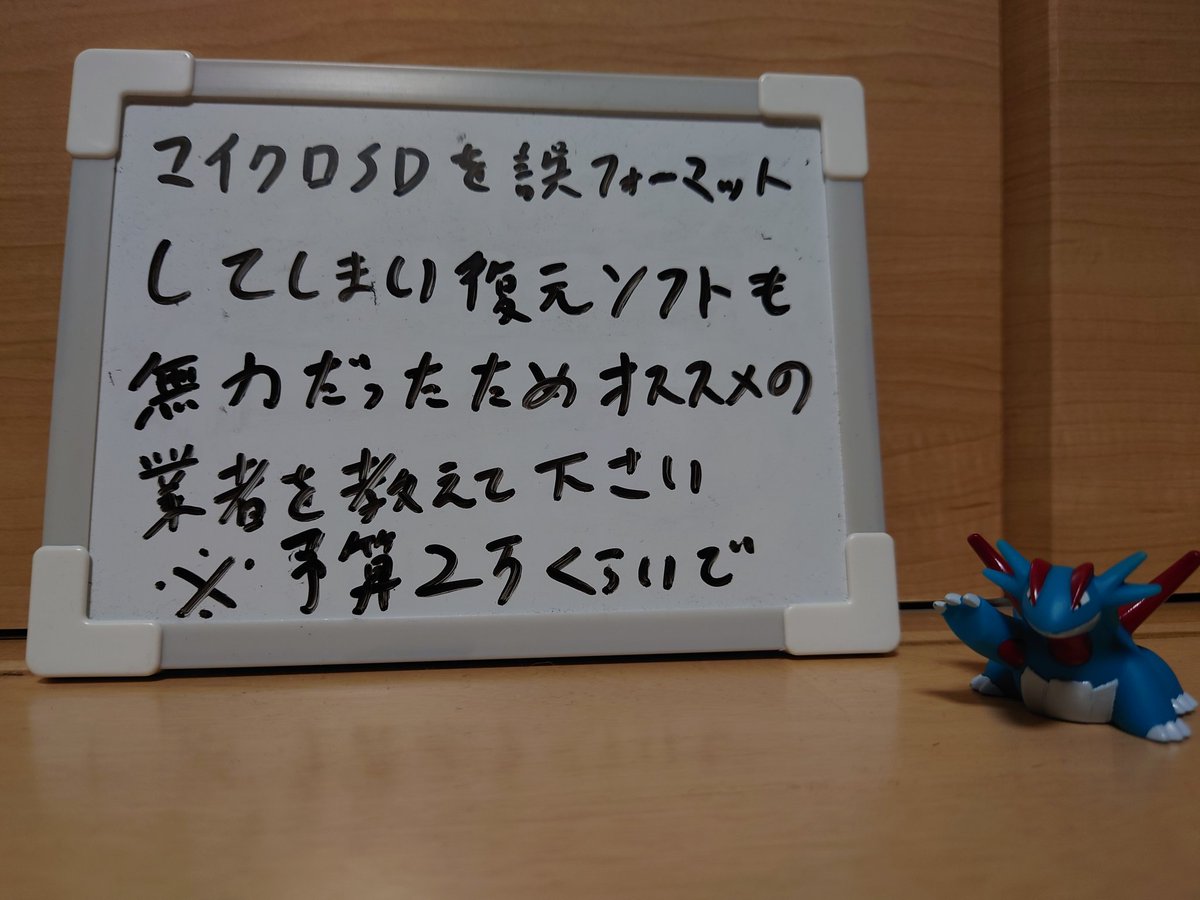 マイクロSDを誤フォーマット
してしまい復元ソフトも
無力だったためオススメの
業者を教えて下さい
※予算2万くらいで